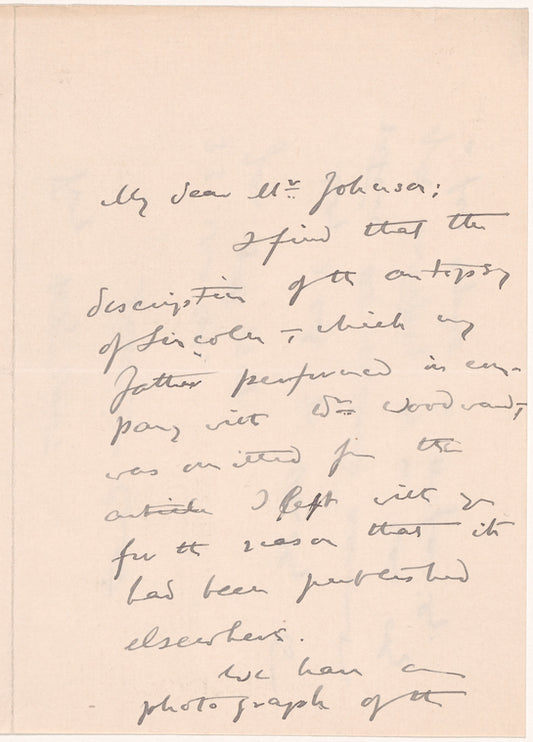 My dear Mr Johnson:
I find that the
description of the autopsy
of Lincoln – which my
father performed in com-
pany with Dr Woodward –
was omitted from the
article I left with you
for the reason that it
had been published
elsewhere.
We have a
photograph of the